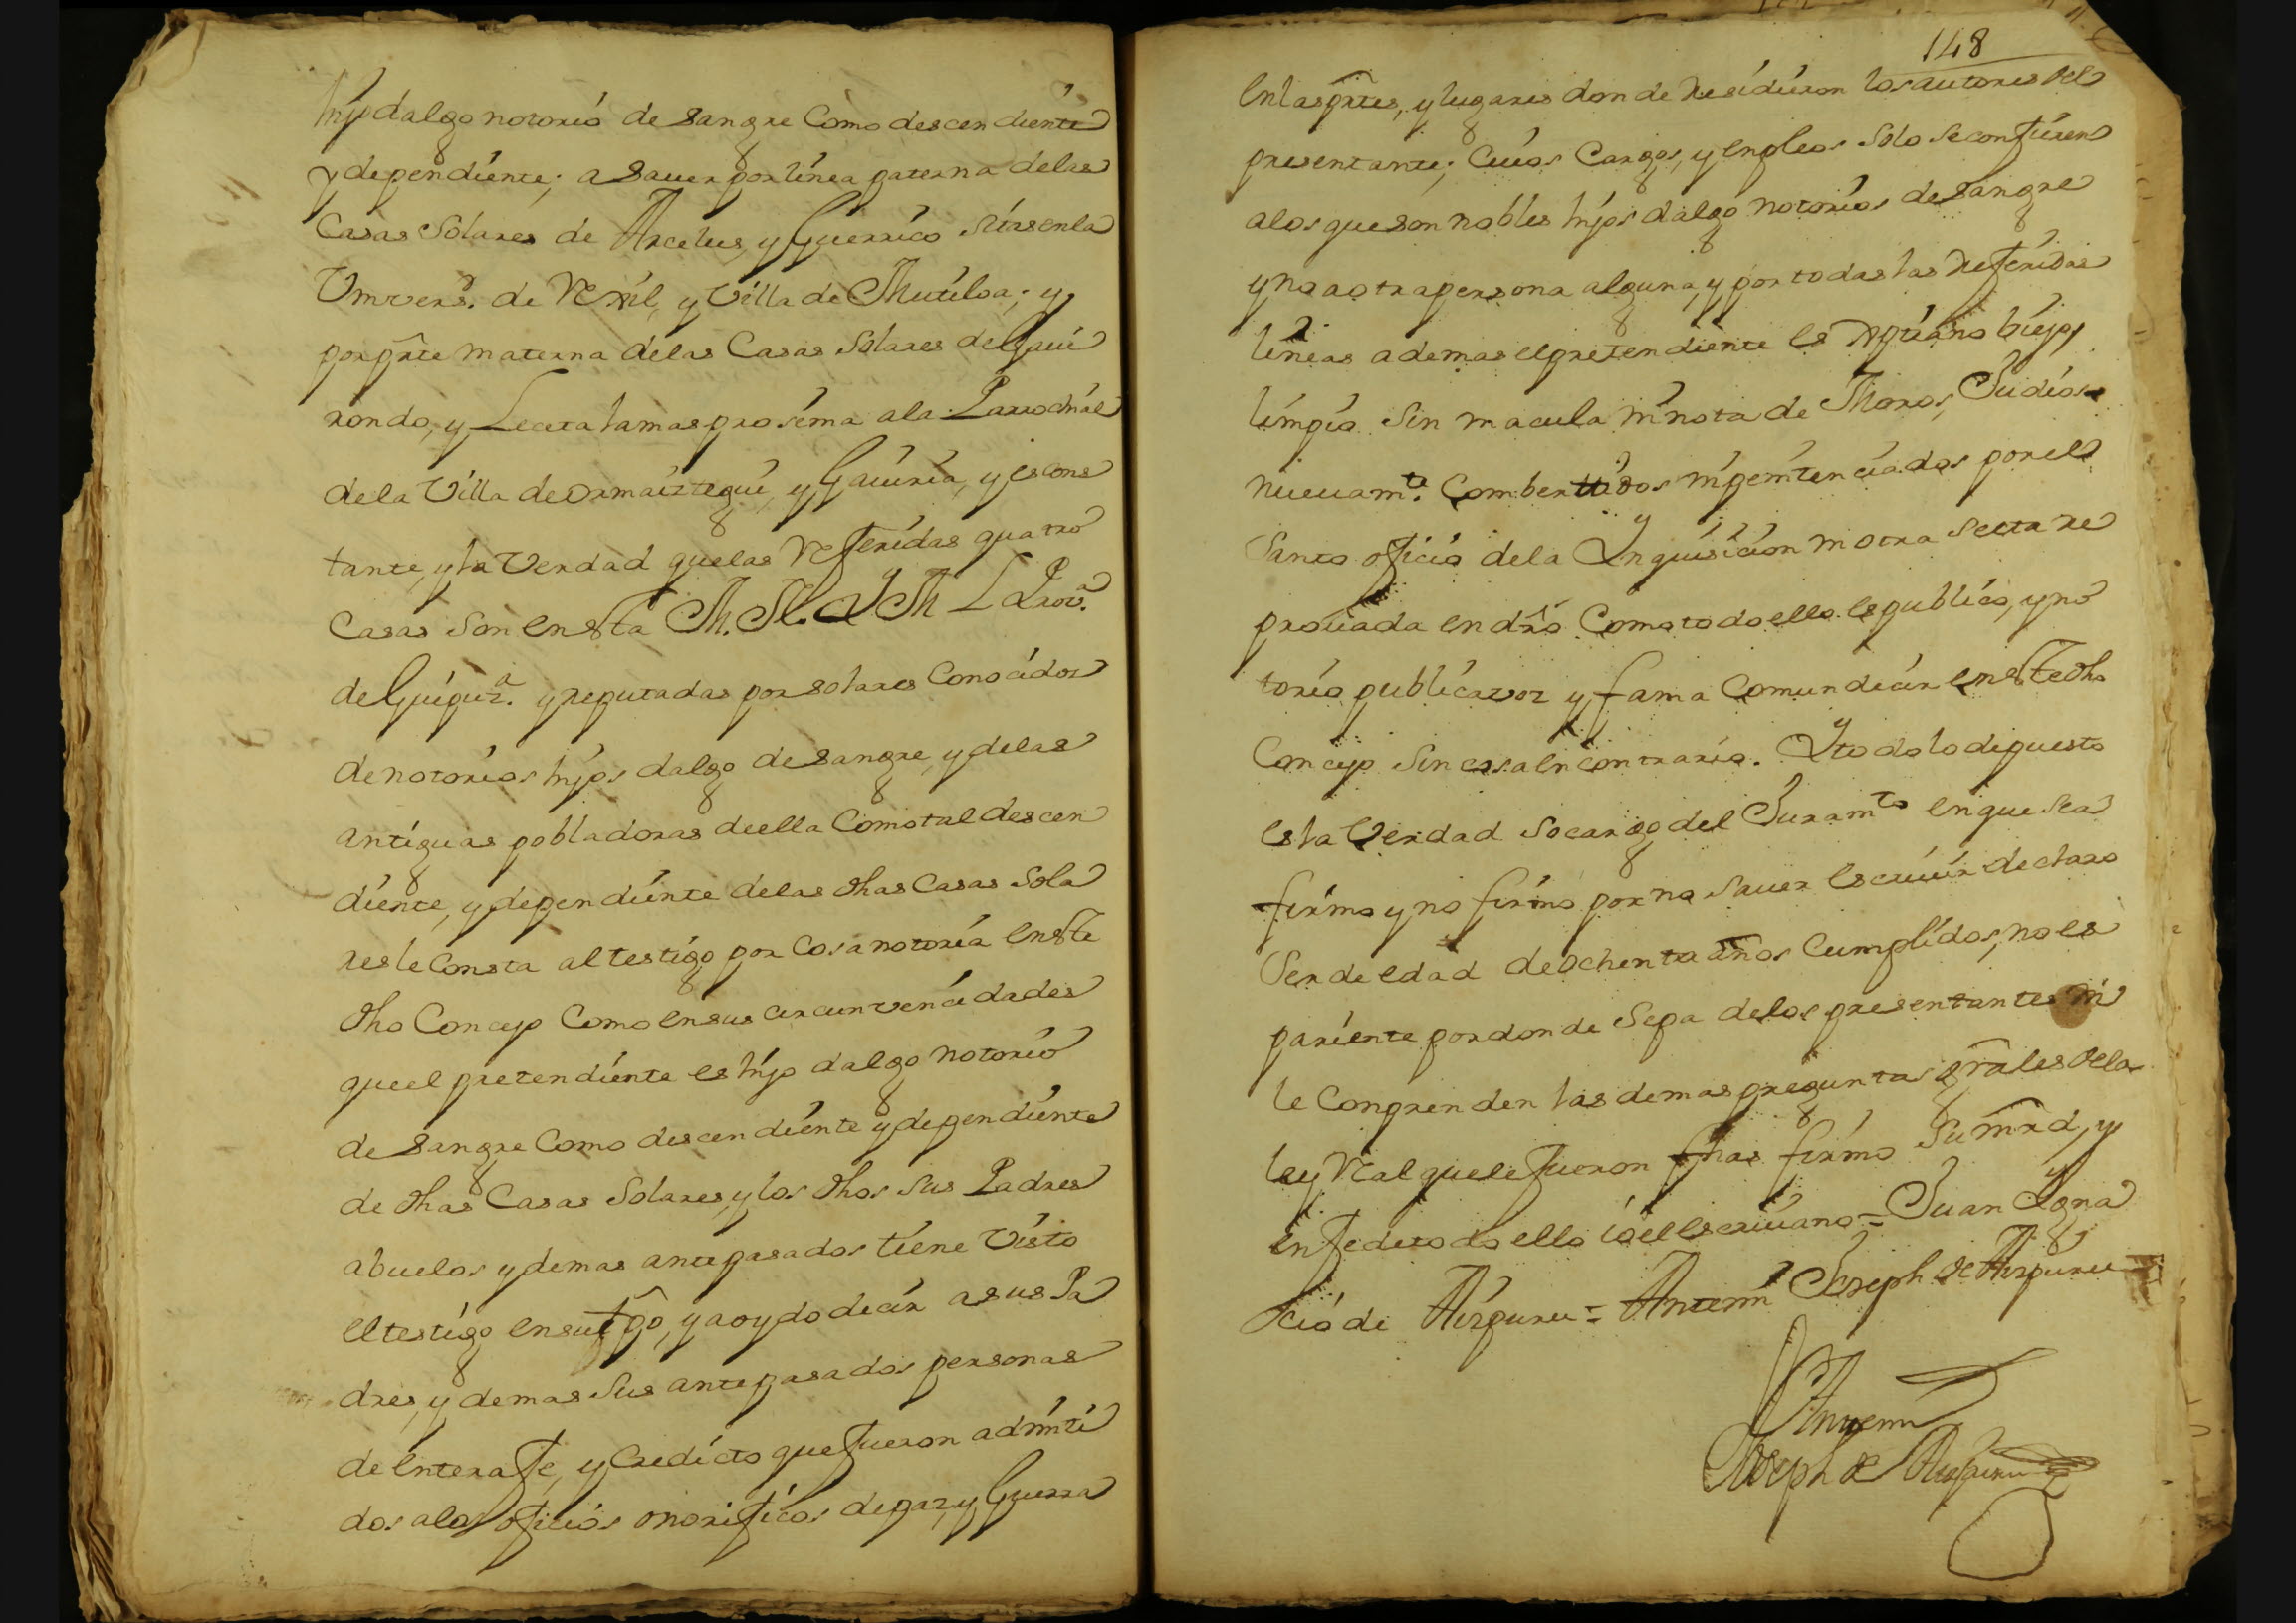 hijo dalgo notorio de sangre Como descendiente
y dependiente; a Sauer por linea paterna delas
Casas Solares de Arcelus, y Guerrico sitas en la
Univers.d de Rexil, y Villa de Mutiloa; y
por pte materna delas Casas Solares de Gaui
rondo, y Leceta la mas prosima ala Parrochial
dela Villa de Ormaiztegui, y Gauiria, y es cons
tante, y la Verdad que las Referidas quatro
Casas son en esta M. N. Y M L Prov.a
de Guipuz.a y reputadas por solares Conocidos
de notorios hijos dalgo de sangre, y delas
antiguas pobladoras de ella Como tal descen
diente, y dependiente delas dhas Casas Sola
res le Consta al testigo por Cosa notoria en este
dho Concejo Como en sus circunvencidades
que el pretendiente es hijo dalgo notorio
de sangre Como descendiente y dependiente
de dhas Casas Solares, y los dhos sus Padres
abuelos y demas antepasados tiene Visto
el testigo en su tpo, y a oydo decir a sus Pa
dres, y demas sus antepasados personas
de entera fe, y Credicto que fueron admiti
dos alos oficios onorificos de paz, y Guerra
148
En las ptes, y lugares donde residieron los autores del
presentante; Cuios Cargos, y enpleos solo se confieren
alos que son nobles hijos dalgo notorios de sangre
y no a otra persona alguna, y por todas las Referidas
lineas ademas el pretendiente es Xpiano biejo,
limpio sin macula ni nota de Moros, Judios
nueuam.te Combertidos ni penitenciados por el
Santo oficio dela Ynquisicion ni otra Secta re
prouada en dro Como todo ello es publico, y no
torio publica voz y fama Comun decir en este dho
Concejo sin cosa en contrario. Y todo lo depuesto
es la Verdad so cargo del Juram.to en que se a
firmo y no firmo por no sauer escriuir declaro
Ser de edad de ochenta años Cumplidos, no es
pariente por donde Sepa delos presentantes ni
le Conprenden las demas preguntas grales dela
ley Real que le fueron fhas firmo Su mrd, y
en fe de todo ello io el escriuano = Juan Ygna
cio de Aizpuru = Antemi Joseph de Aizpuru
Antemi
Joseph de Aizpuru